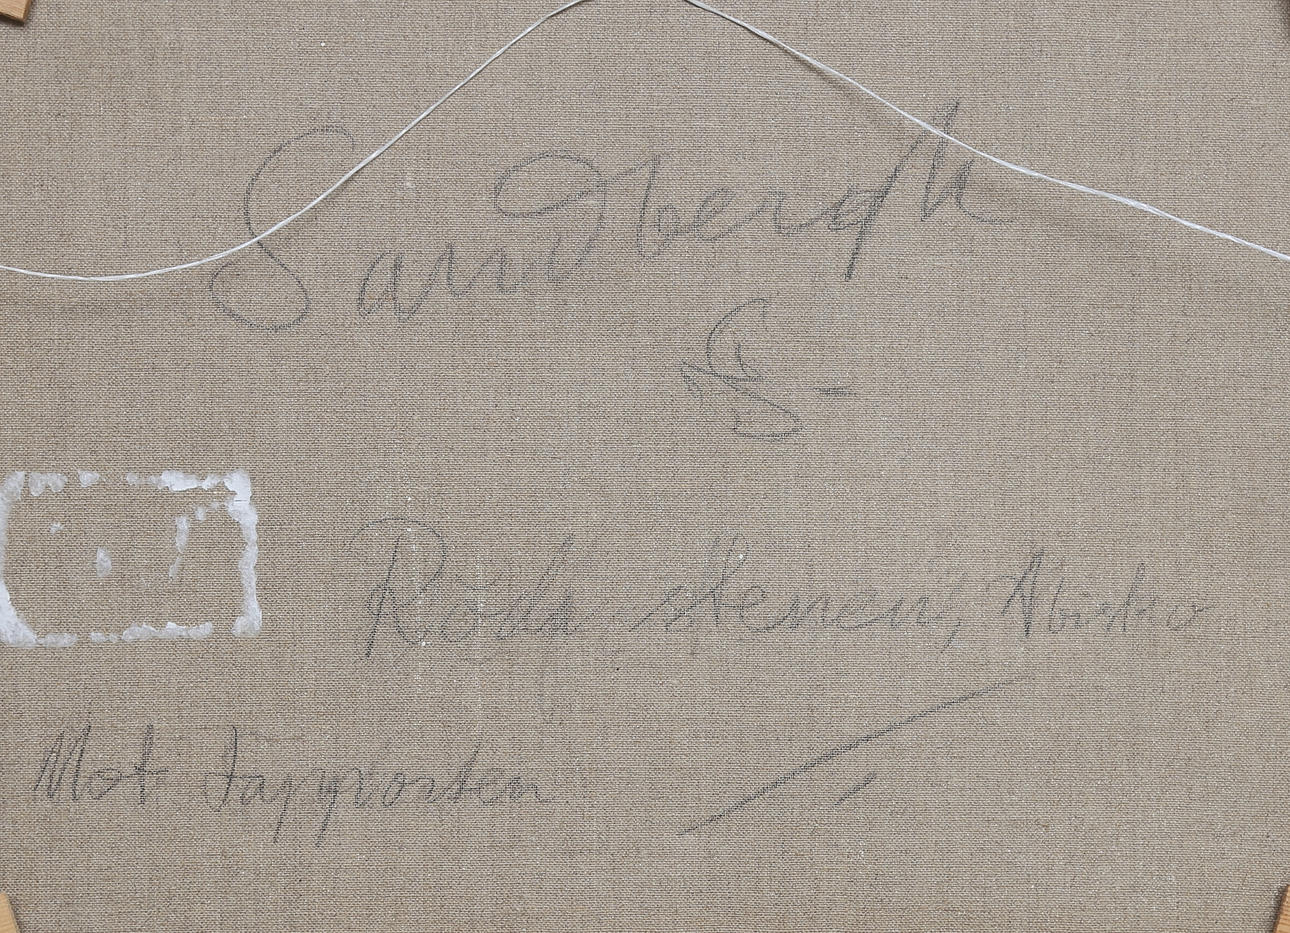 Sandbergh
Röda stenen, Abisko
Mot Lapporten